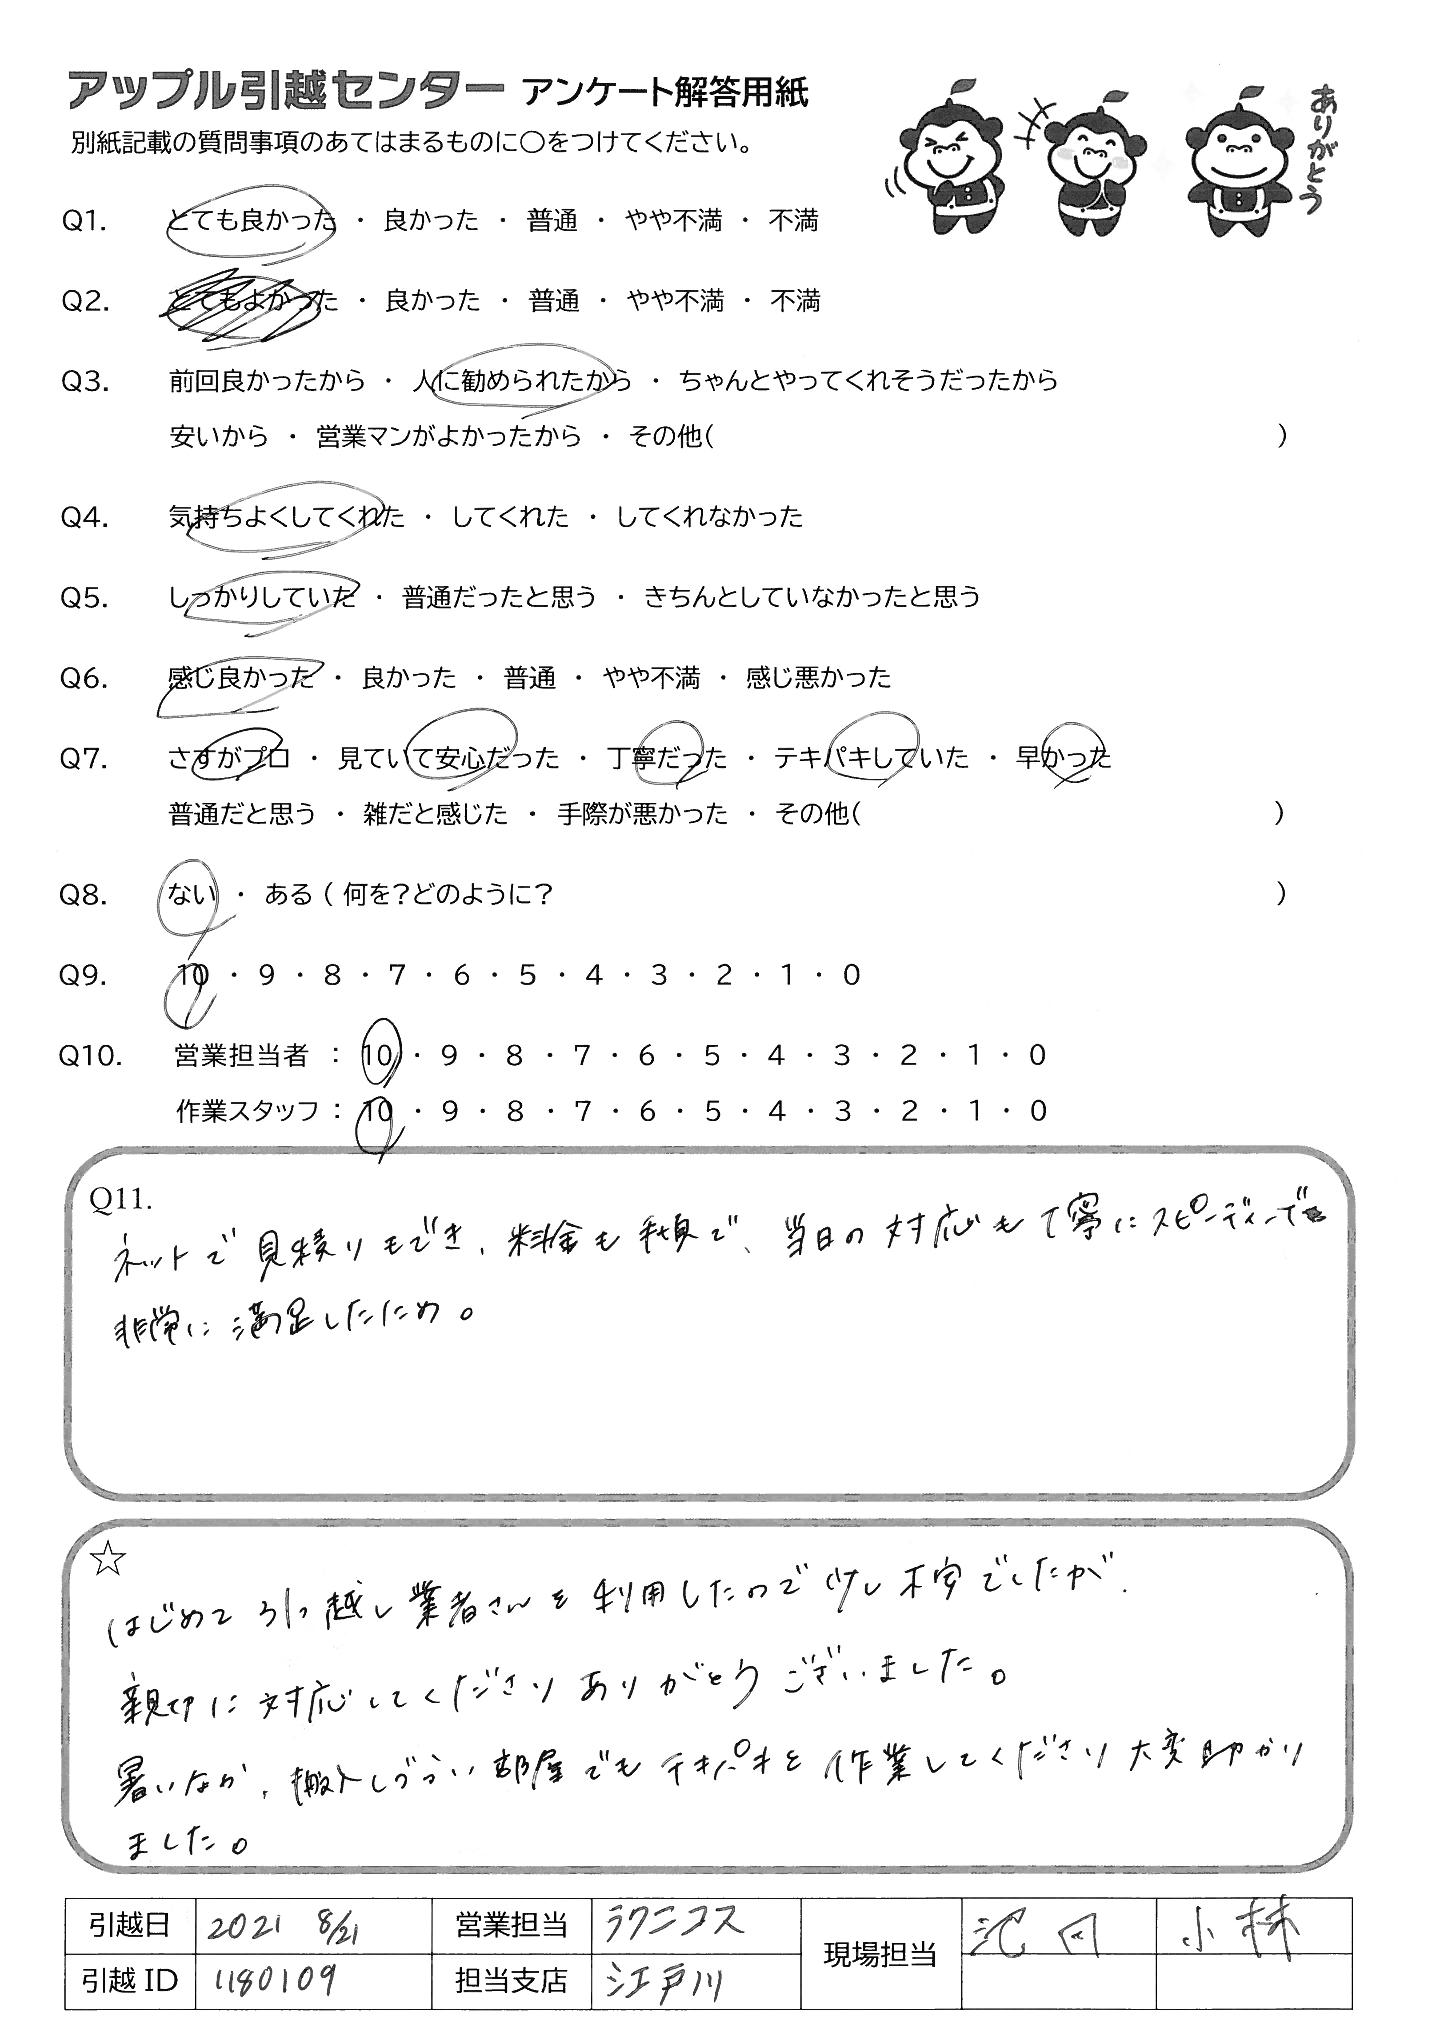 アップル引越センター アンケート解答用紙
ありがとう
別紙記載の質問事項のあてはまるものに○をつけてください。
Q1. とても良かった ・ 良かった ・ 普通 ・ やや不満 ・ 不満
Q2. とてもよかった ・ 良かった ・ 普通 ・ やや不満 ・ 不満
Q3. 前回良かったから ・ 人に勧められたから ・ ちゃんとやってくれそうだったから
安いから ・ 営業マンがよかったから ・ その他( )
Q4. 気持ちよくしてくれた ・ してくれた ・ してくれなかった
Q5. しっかりしていた ・ 普通だったと思う ・ きちんとしていなかったと思う
Q6. 感じ良かった ・ 良かった ・ 普通 ・ やや不満 ・ 感じ悪かった
Q7. さすがプロ ・ 見ていて安心だった ・ 丁寧だった ・ テキパキしていた ・ 早かった
普通だと思う ・ 雑だと感じた ・ 手際が悪かった ・ その他( )
Q8. ない ・ ある ( 何を?どのように? )
Q9. 10 ・ 9 ・ 8 ・ 7 ・ 6 ・ 5 ・ 4 ・ 3 ・ 2 ・ 1 ・ 0
Q10. 営業担当者 : 10 ・ 9 ・ 8 ・ 7 ・ 6 ・ 5 ・ 4 ・ 3 ・ 2 ・ 1 ・ 0
作業スタッフ : 10 ・ 9 ・ 8 ・ 7 ・ 6 ・ 5 ・ 4 ・ 3 ・ 2 ・ 1 ・ 0
Q11.
ネットで見積りもでき、料金も手頃で、当日の対応も丁寧にスピーディーで
非常に満足したため。
☆
はじめて引っ越し業者さんを利用したので少し不安でしたが、
親切に対応してくださりありがとうございました。
暑いなか、搬入しづらい部屋でもテキパキと作業してくださり大変助かり
ました。
引越日 2021 8/21 営業担当 ラクニコス 現場担当 池田 小林
引越ID 1180109 担当支店 江戸川